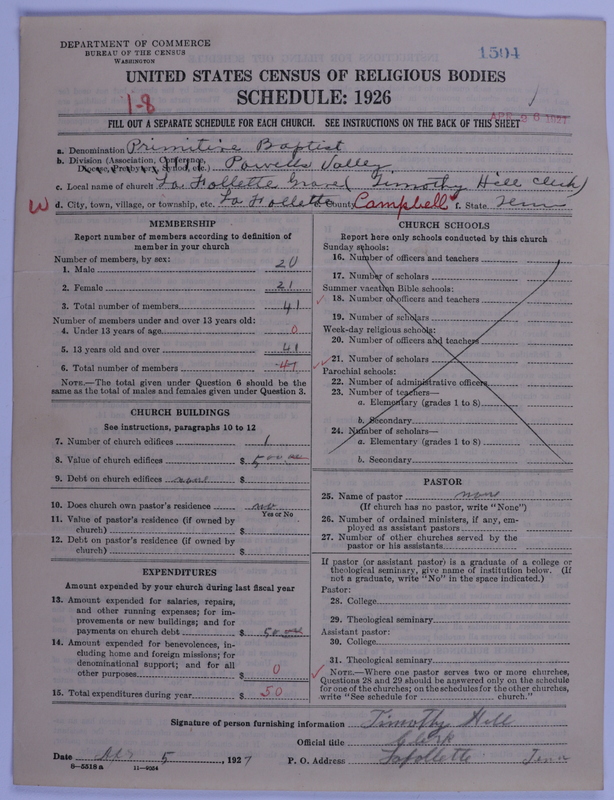 DEPARTMENT OF COMMERCE
BUREAU OF THE CENSUS
WASHINGTON
1504
UNITED STATES CENSUS OF RELIGIOUS BODIES
SCHEDULE: 1926
1-8
FILL OUT A SEPARATE SCHEDULE FOR EACH CHURCH. SEE INSTRUCTIONS ON THE BACK OF THIS SHEET
a. Denomination Primitive Baptist
b. Division (Association, Conference, Diocese, Presbytery, Synod, etc.) Powells Valley
c. Local name of church La Follette Gravel (Timothy Hill Clerk)
W d. City, town, village, or township, etc. La Follette e. County Campbell f. State Tenn
MEMBERSHIP
Report number of members according to definition of
member in your church
Number of members, by sex:
1. Male 20
2. Female 21
3. Total number of members 41
Number of members under and over 13 years old:
4. Under 13 years of age 0
5. 13 years old and over 41
6. Total number of members 41
NOTE.—The total given under Question 6 should be the
same as the total of males and females given under Question 3.
CHURCH BUILDINGS
See instructions, paragraphs 10 to 12
7. Number of church edifices 1
8. Value of church edifices $ 500.00
9. Debt on church edifices none $
10. Does church own pastor's residence no
Yes or No
11. Value of pastor's residence (if owned by
church) $
12. Debt on pastor's residence (if owned by
church) $
EXPENDITURES
Amount expended by your church during last fiscal year
13. Amount expended for salaries, repairs,
and other running expenses; for im-
provements or new buildings; and for
payments on church debt $ 50.00
14. Amount expended for benevolences, in-
cluding home and foreign missions; for
denominational support; and for all
other purposes $ 0
15. Total expenditures during year $ 50
CHURCH SCHOOLS
Report here only schools conducted by this church
Sunday schools:
16. Number of officers and teachers
17. Number of scholars
Summer vacation Bible schools:
18. Number of officers and teachers
19. Number of scholars
Week-day religious schools:
20. Number of officers and teachers
21. Number of scholars
Parochial schools:
22. Number of administrative officers
23. Number of teachers—
a. Elementary (grades 1 to 8)
b. Secondary
24. Number of scholars—
a. Elementary (grades 1 to 8)
b. Secondary
PASTOR
25. Name of pastor none
(If church has no pastor, write "None")
26. Number of ordained ministers, if any, em-
ployed as assistant pastors
27. Number of other churches served by the
pastor or his assistants
If pastor (or assistant pastor) is a graduate of a college or
theological seminary, give name of institution below. (If
not a graduate, write "No" in the space indicated.)
Pastor:
28. College
29. Theological seminary
Assistant pastor:
30. College
31. Theological seminary
NOTE.—Where one pastor serves two or more churches,
Questions 28 and 29 should be answered only on the schedule
for one of the churches; on the schedules for the other churches,
write "See schedule for church."
Signature of person furnishing information Timothy Hill
Official title Clerk
Date 5, 1927 P. O. Address Lafollette Tenn
8—5518 a 11—9254